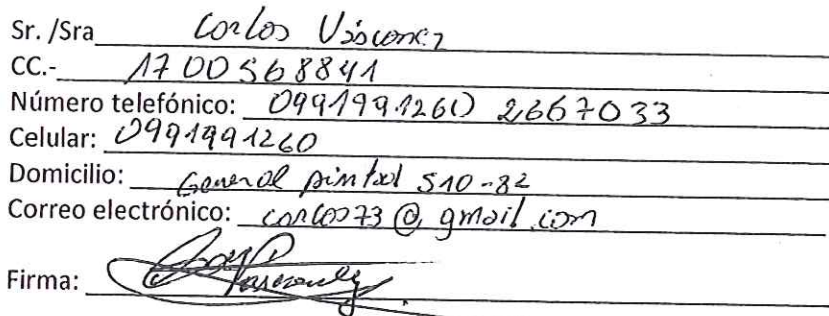 Sr. /Sra Carlos Vásconez
CC.- 1700568841
Número telefónico: 0991991260 2667033
Celular: 0991991260
Domicilio: General pintal S10-82
Correo electrónico: carlos73@gmail.com
Firma: